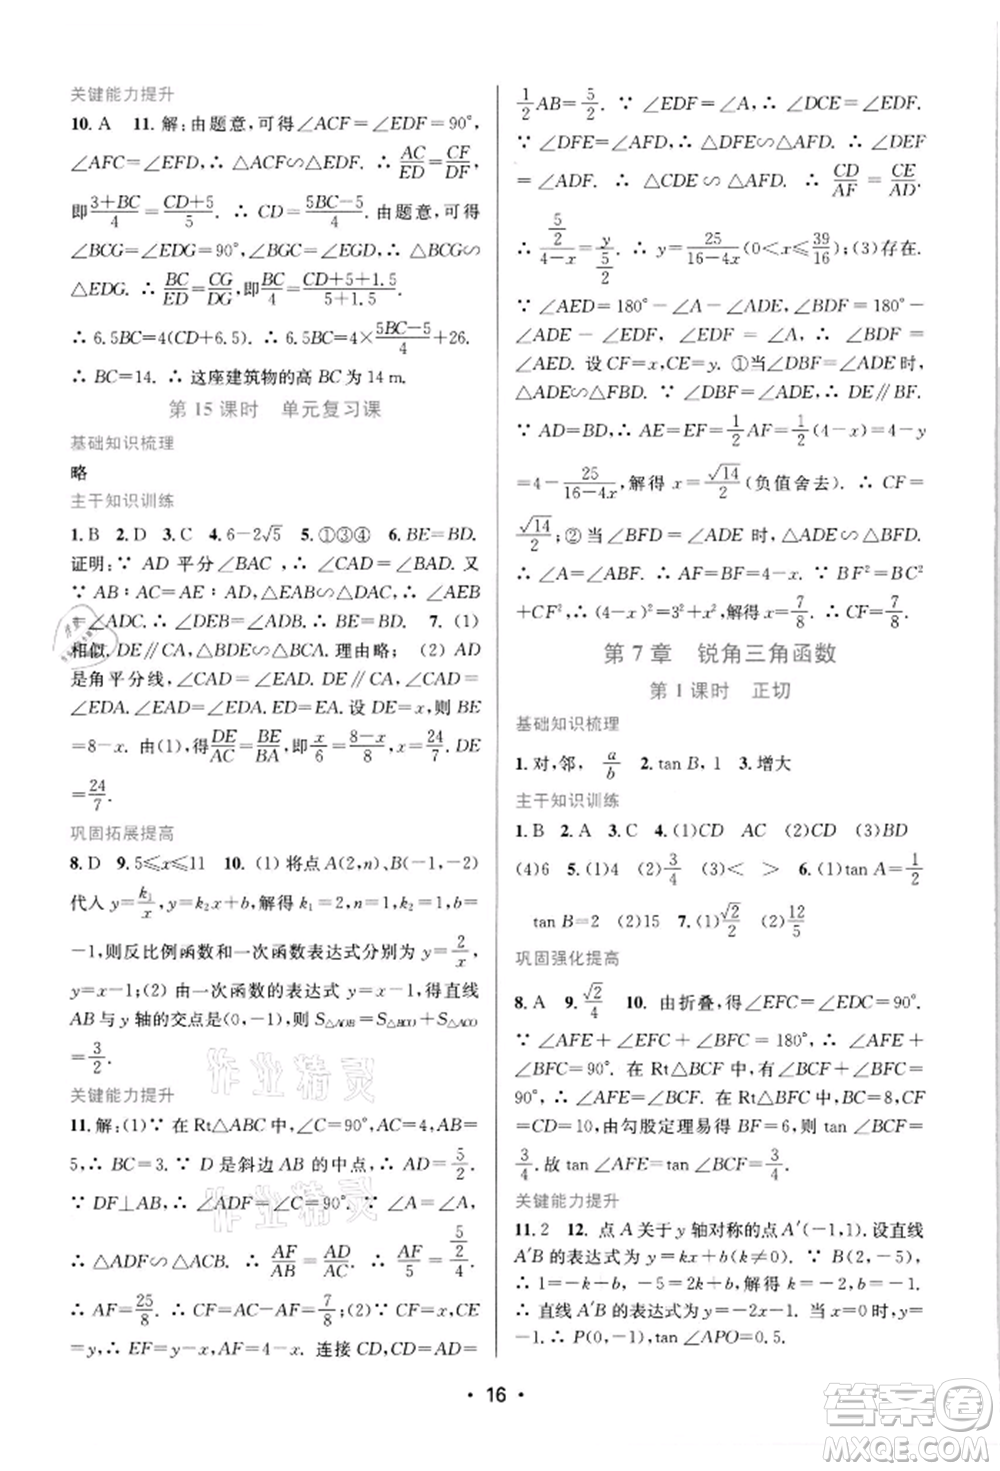 关键能力提升
10. A　11. 解：由题意，可得∠ACF=∠EDF=90°，
∠AFC=∠EFD，∴△ACF∽△EDF. ∴AC/ED=CF/DF，
即(3+BC)/4=(CD+5)/5. ∴CD=(5BC-5)/4. 由题意，可得
∠BCG=∠EDG=90°，∠BGC=∠EGD. ∴△BCG∽
△EDG. ∴BC/ED=CG/DG. ∴BC/4=(CD+5+1.5)/(5+1.5).
∴6.5BC=4(CD+6.5). ∴6.5BC=4×(5BC-5)/4+26.
∴BC=14. ∴这座建筑物的高BC为14 m.
第15课时　单元复习课
基础知识梳理
略
主干知识训练
1. B　2. D　3. C　4. 6-2√5　5. ①③④　6. BE=BD.
证明：∵AD平分∠BAC，∴∠BAE=∠CAD. 又
∵AB：AC=AE：AD，∴△EAB∽△DAC. ∴∠AEB
=∠ADC. ∴∠BED=∠BDE. ∴BE=BD.　7. (1)
相似. ∵DE∥CA，∴△BDE∽△BCA. 理由略；(2)AD
是角平分线，∴∠CAD=∠EDA. ∵DE∥CA，∴∠CAD
=∠EDA. ∴∠EAD=∠EDA. ∴EA=ED. 设DE=x，则BE
=8-x. 由(1)，得DE/AC=BE/BA，即x/6=(8-x)/8. ∴x=24/7，DE=
24/7.
巩固拓展提高
8. D　9. 5≤x≤11　10. (1)将点A(2,n)、B(-1,-2)
代入y=k₁/x，y=k₂x+b，得k₁=2，k₂=1，n=1，b=
-1，则反比例函数和一次函数表达式分别为y=2/x，y=
x-1；(2)由一次函数的表达式y=x-1，可得直线
AB与y轴的交点是(0,-1)，则S△AOB=S△BCO+S△ACO
=3/2.
关键能力提升
11. 解：(1)∵在Rt△ABC中，∠C=90°，AC=4，AB=
5，∴BC=3. ∵D是斜边AB的中点，∴AD=5/2.
∵DF⊥AB，∴∠ADF=∠C=90°. ∵∠A=∠A，
∴△ADF∽△ACB. ∴AF/AB=AD/AC. ∴AF/5=(5/2)/4.
∴AF=25/8. ∴CF=AC-AF=7/8；(2)∵CF=x，CE
=y，∴EF=y-x，AF=4-x. 连接CD，∴CD=AD=
1/2AB=5/2. ∵∠EDF=∠A，∴∠DCE=∠EDF.
∵∠DFE=∠AFD，∴△DFE∽△AFD. ∴∠DEF=
∠ADF. ∴△CDE∽△AFD. ∴CD/AF=CE/AD.
∴(5/2)/(4-x)=y/(5/2). ∴y=25/(16-4x)(0<x≤39/16)；(3)存在.
∵∠AED=180°-∠A-∠ADE，∠BDF=180°-
∠ADE-∠EDF，∠EDF=∠A，∴∠BDF=
∠AED. 设CF=x，CE=y. ①当∠DBF=∠ADE时，
△ADE∽△FBD. ∵∠DBF=∠ADE，∴DE∥BF.
∵AD=BD，∴AE=EF=1/2AF=1/2(4-x)=4-y
=4-25/(16-4x). 解得x=√14/2(负值舍去). ∴CF=
√14/2；②当∠BFD=∠ADE时，△ADE∽△BFD，
∴∠A=∠ABF. ∴AF=BF=4-x. ∵BF²=BC²
+CF²，∴(4-x)²=3²+x². 解得x=7/8. ∴CF=7/8.
第7章　锐角三角函数
第1课时　正切
基础知识梳理
1. 对，邻，a/b　2. tan B，1　3. 增大
主干知识训练
1. B　2. A　3. C　4. (1)CD　AC　(2)CD　BD
(4)6　5. (1)4　(2)3/4　(3)<　>　6. (1)tan A=1/2
tan B=2　(2)15　7. (1)√2/2　(2)12/5
巩固强化提高
8. A　9. √2/4　10. 由折叠，得∠EFC=∠EDC=90°.
∵∠AFE+∠EFC+∠BFC=180°，∴∠AFE+
∠BFC=90°. ∵在Rt△BCF中，∠BCF+∠BFC=
90°，∴∠AFE=∠BCF. ∵在Rt△BFC中，BC=8，CF
=CD=10，由勾股定理易得BF=6，则tan∠BCF=
3/4. 故tan∠AFE=tan∠BCF=3/4.
关键能力提升
11. 2　12. 点A关于y轴对称的点A′(-1,1). 设直线
A′B的表达式为y=kx+b(k≠0). ∵B(2,-5)，
∴1=-k+b，-5=2k+b，解得k=-2，b=-1.
∴直线A′B的表达式为y=-2x-1. 当x=0时，y=
-1. ∴P(0,-1)，tan∠APO=0.5.
· 16 ·
作业精灵
作业精灵
答案圈
MXQE.COM